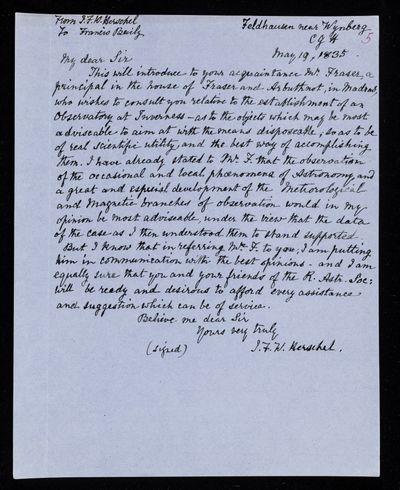 From J.F.W. Herschel
To Francis Baily
Feldhausen near Wynberg
C G H
5
May 19, 1835
My dear Sir
This will introduce to your acquaintance Mr Fraser, a
principal in the house of Fraser and Arbuthnot, in Madras,
who wishes to consult you relative to the establishment of an
Observatory at Inverness – as to the objects which may be most
adviseable to aim at with the means disposeable, so as to be
of real scientific utility, and the best way of accomplishing
them. I have already stated to Mr F. that the observation
of the occasional and local phaenomena of Astronomy, and
a great and especial development of the Meteorological
and Magnetic branches of observation would in my
opinion be most adviseable, under the view that the data
of the case as I then understood them to stand supported.
But I know that in referring Mr F. to you, I am putting
him in communication with the best opinions – and I am
equally sure that you and your friends of the R. Astr. Soc:
will be ready and desirous to afford every assistance
and suggestion which can be of service.
Believe me dear Sir
Yours very truly
(signed) J.F.W. Herschel.